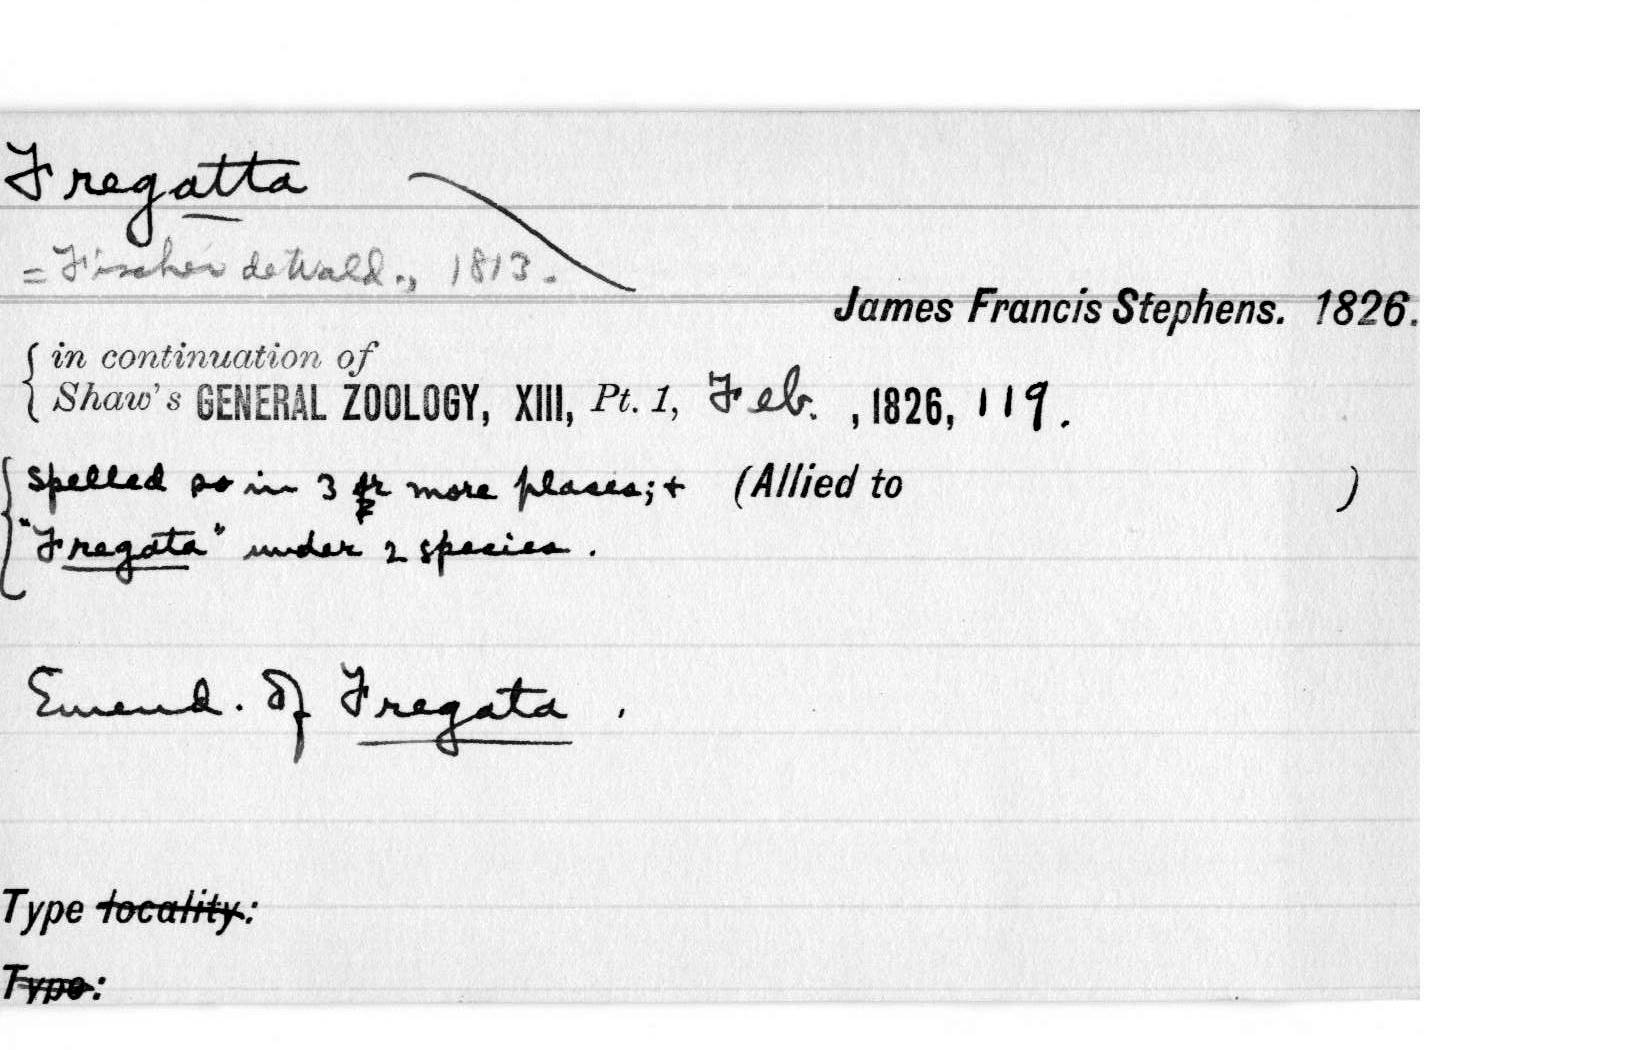 Fregatta
= Fischer de Wald., 1813.
James Francis Stephens. 1826.
in continuation of
Shaw's GENERAL ZOOLOGY, XIII, Pt. 1, Feb. , 1826, 119.
spelled so in 3 or more places; + (Allied to )
"Fregata" under 2 species.
Emend. of Fregata.
Type locality:
Type: